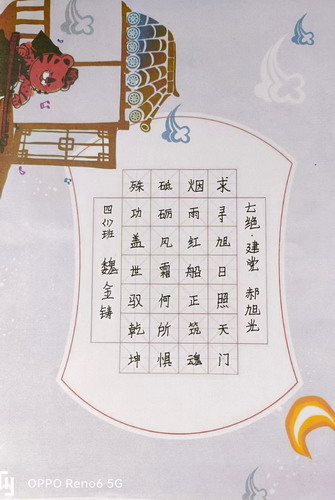 七绝·建党 郝旭光
求寻旭日照天门
烟雨红船正筑魂
砥砺风霜何所惧
殊功盖世驭乾坤
四班 魏金铸
OPPO Reno6 5G